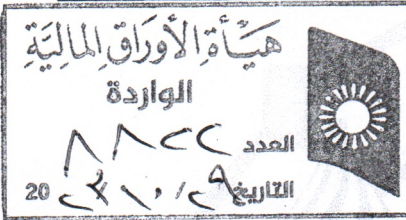 هَيْأَةُ الأَوْرَاقِ المَالِيَّةِ
الواردة
العدد ٨٨٢٢
التاريخ ٢٩ / ١٠ / ٢٣ 20